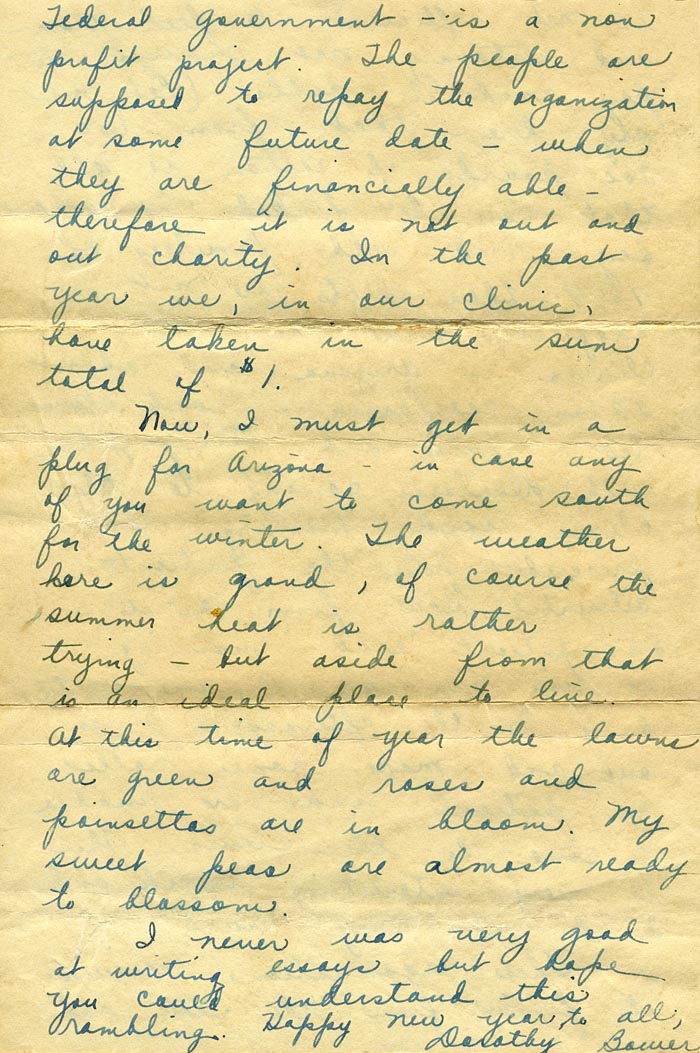 Federal government - is a non
profit project. The people are
supposed to repay the organization
at some future date - when
they are financially able -
therefore it is not out and
out charity. In the past
year we, in our clinic,
have taken in the sum
total of $1.
Now, I must get in a
plug for Arizona - in case any
of you want to come south
for the winter. The weather
here is grand, of course the
summer heat is rather
trying - but aside from that
is an ideal place to live.
At this time of year the lawns
are green and roses and
poinsettas are in bloom. My
sweet peas are almost ready
to blossom.
I never was very good
at writing essays but hope
you could understand this
rambling. Happy new year, to all,
Dorothy Bower